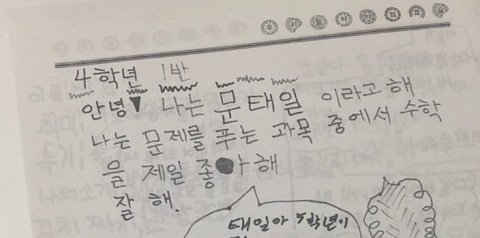 4학년 1반
안녕 나는 문태일 이라고 해
나는 문제를 푸는 과목 중에서 수학
을 제일 좋아해
잘 해.
태일아 5학년이